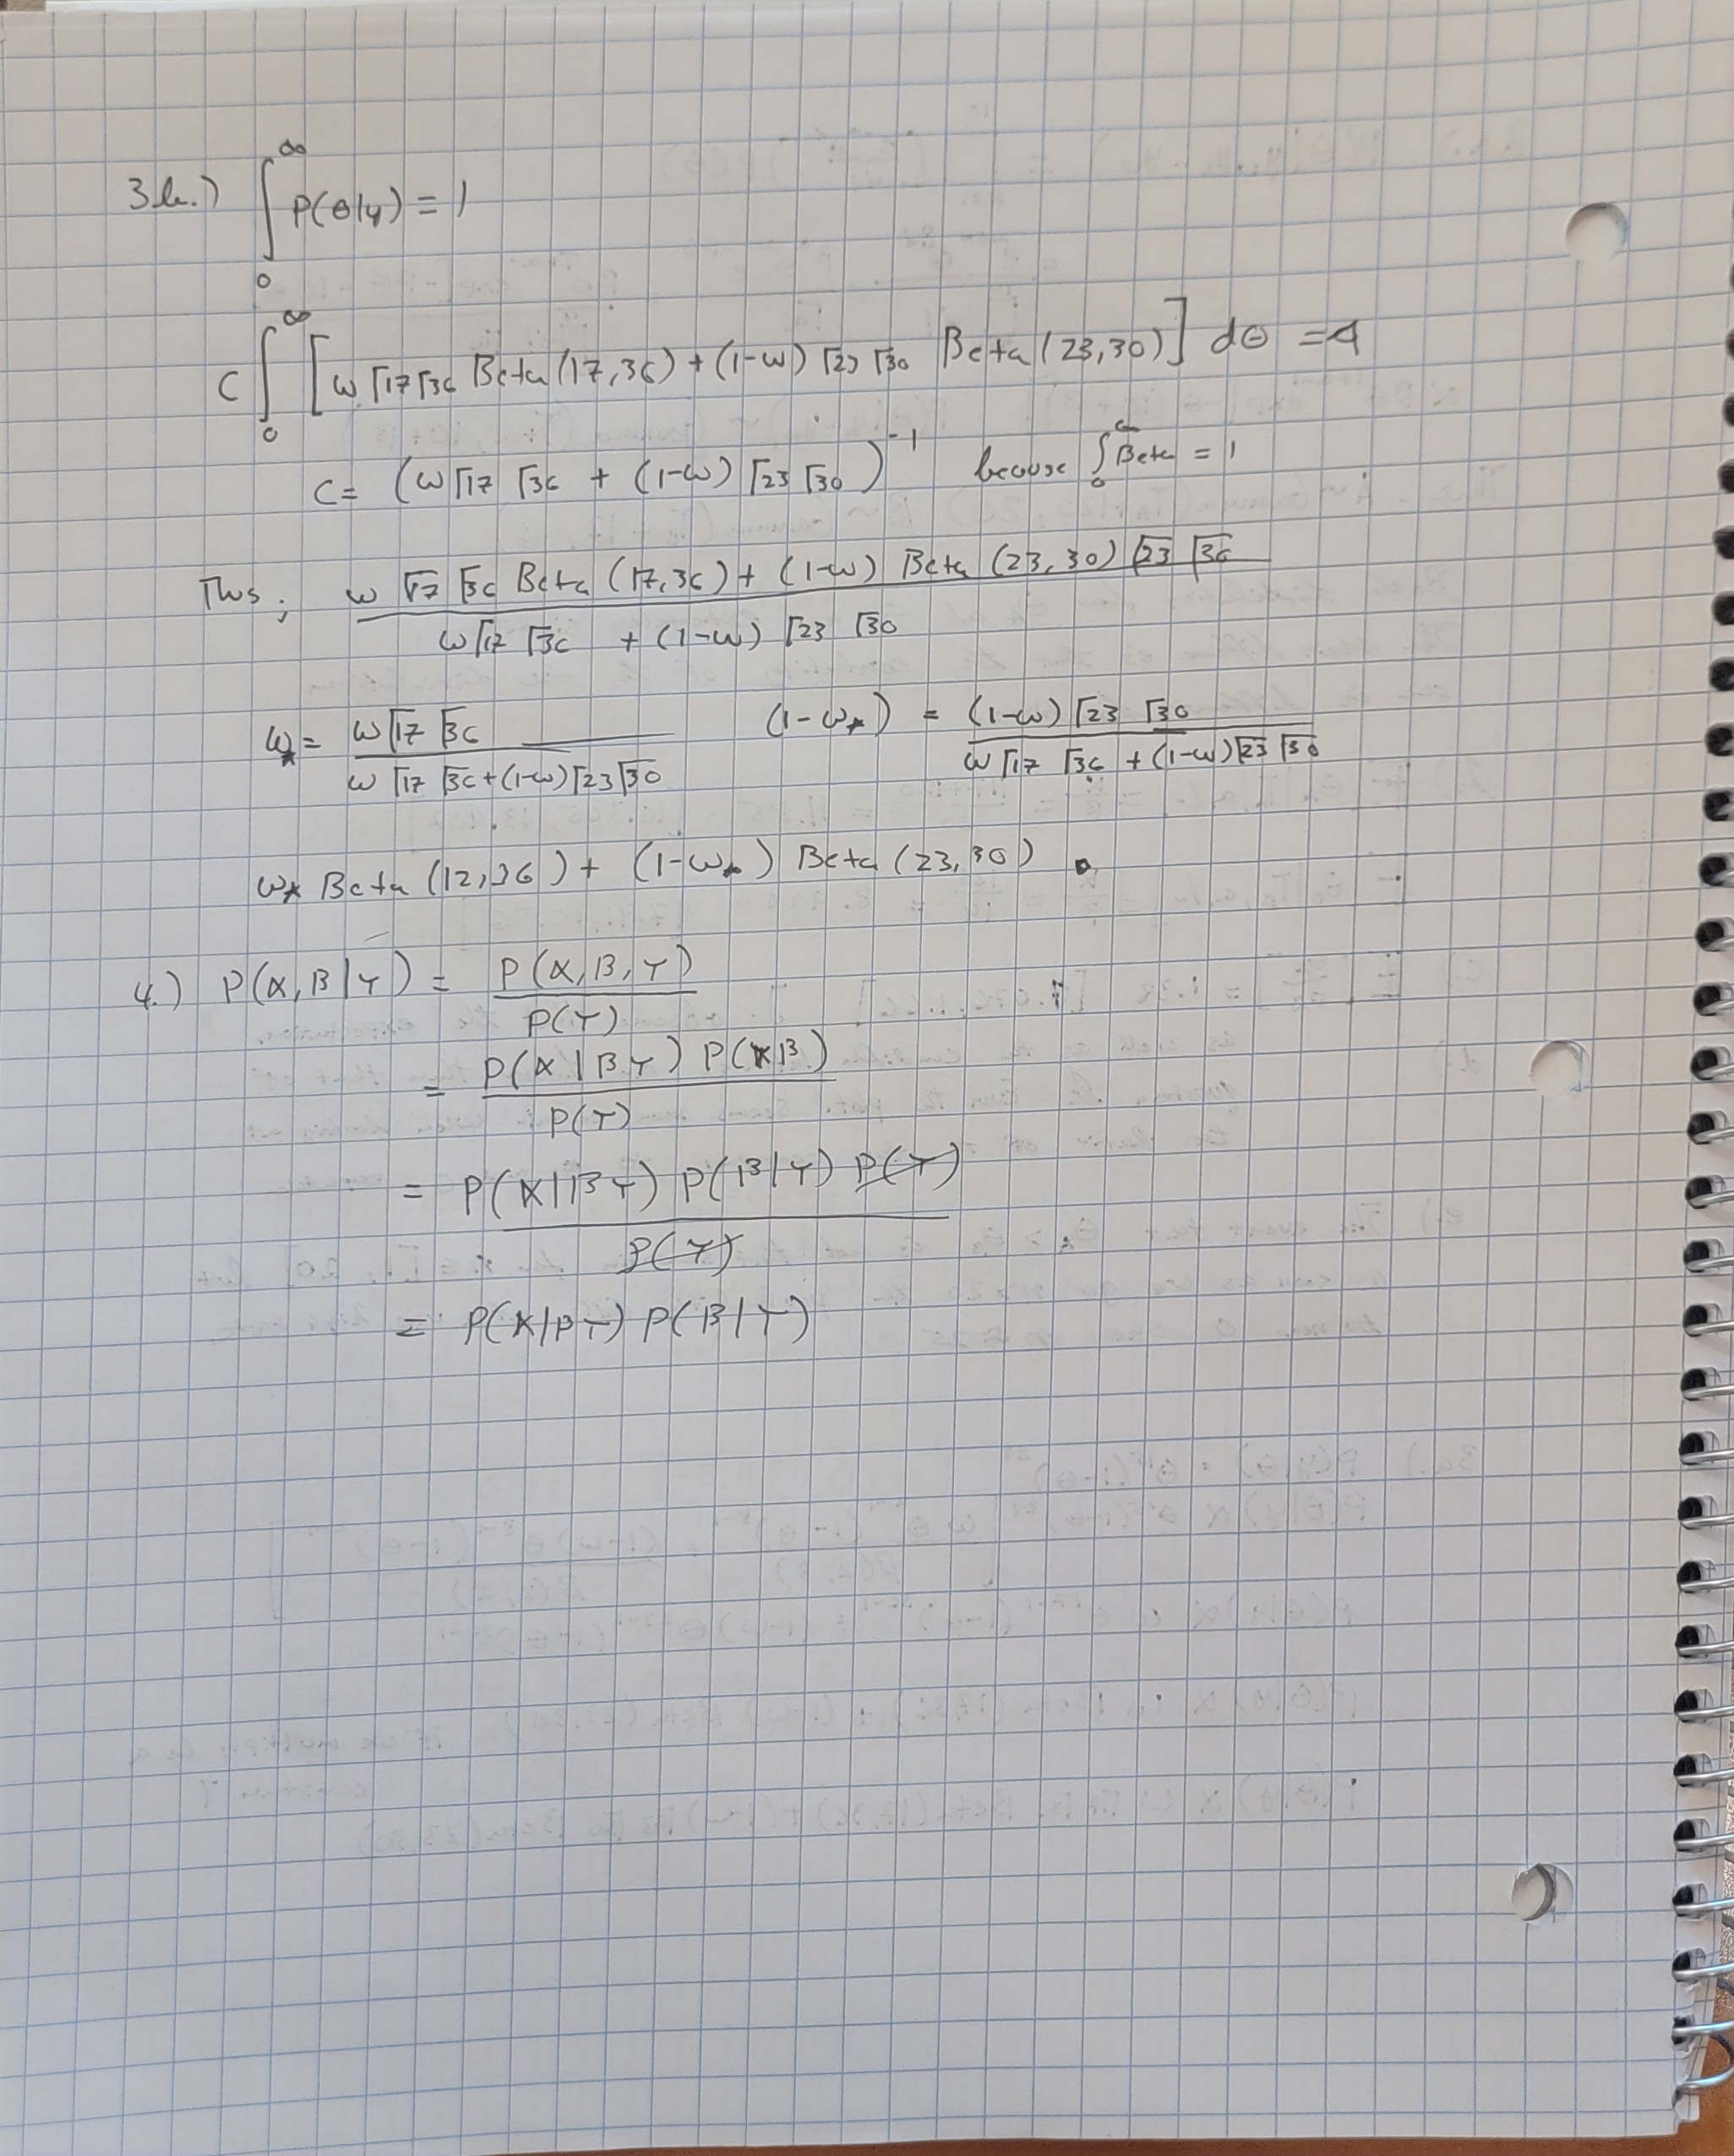 3b.) ∫₀^∞ P(θ|y) = 1
C ∫₀^∞ [ω Γ17 Γ36 Beta(17,36) + (1-ω) Γ23 Γ30 Beta(23,30)] dθ = 1
C = (ω Γ17 Γ36 + (1-ω) Γ23 Γ30)^-1 because ∫₀^∞ Beta = 1
Thus; ω Γ17 Γ36 Beta(17,36) + (1-ω) Beta(23,30) Γ23 Γ36
ω Γ17 Γ36 + (1-ω) Γ23 Γ30
ω* = ω Γ17 Γ36 / ω Γ17 Γ36 + (1-ω) Γ23 Γ30 (1-ω*) = (1-ω) Γ23 Γ30 / ω Γ17 Γ36 + (1-ω) Γ23 Γ30
ω* Beta(12,36) + (1-ω*) Beta(23,30)
4.) P(X,B|Y) = P(X,B,Y) / P(Y)
= P(X|BY) P(YB) / P(Y)
= P(X|BY) P(B|Y) P(Y) / P(Y)
= P(X|BY) P(B|Y)